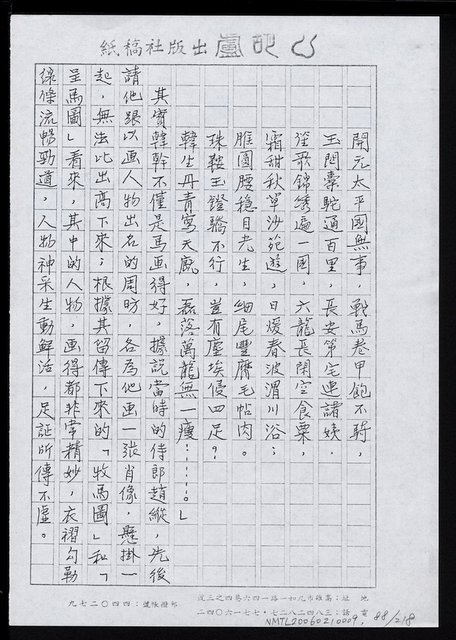 出版社稿紙
開元太平國無事，戰馬卷甲飽不騎，
玉關橐駝通百里，長安第宅連諸姨．
笙歌錦绣遍一國，六龍長閒空食粟，
霜甜秋草沙苑遊，日暖春波渭川浴；
脽圓腰穩目光生，細尾豐膺毛帖肉。
珠鞍玉鐙驕不行，豈有塵埃侵四足？
韓生丹青寫天廐，磊落萬龍無一瘦………。」
其實韓幹不僅是馬画得好，據說當時的侍郎趙縱，先後
請他跟以画人物出名的周昉，各為他画一張肖像，懸掛一
起，無法比出高下來；根據其留傳下來的「牧馬圖」和「
呈馬圖」看來，其中的人物，画得都非常精妙，衣褶勾勒
線條流暢勁道，人物神采生動鮮活，足証所傳不虛。
地址：高雄市九如一路一四六巷四之三號
電話：三八四二八二七．七七一六〇四二
郵撥帳號：四四〇二七九
NMTL20060210009, 88/218